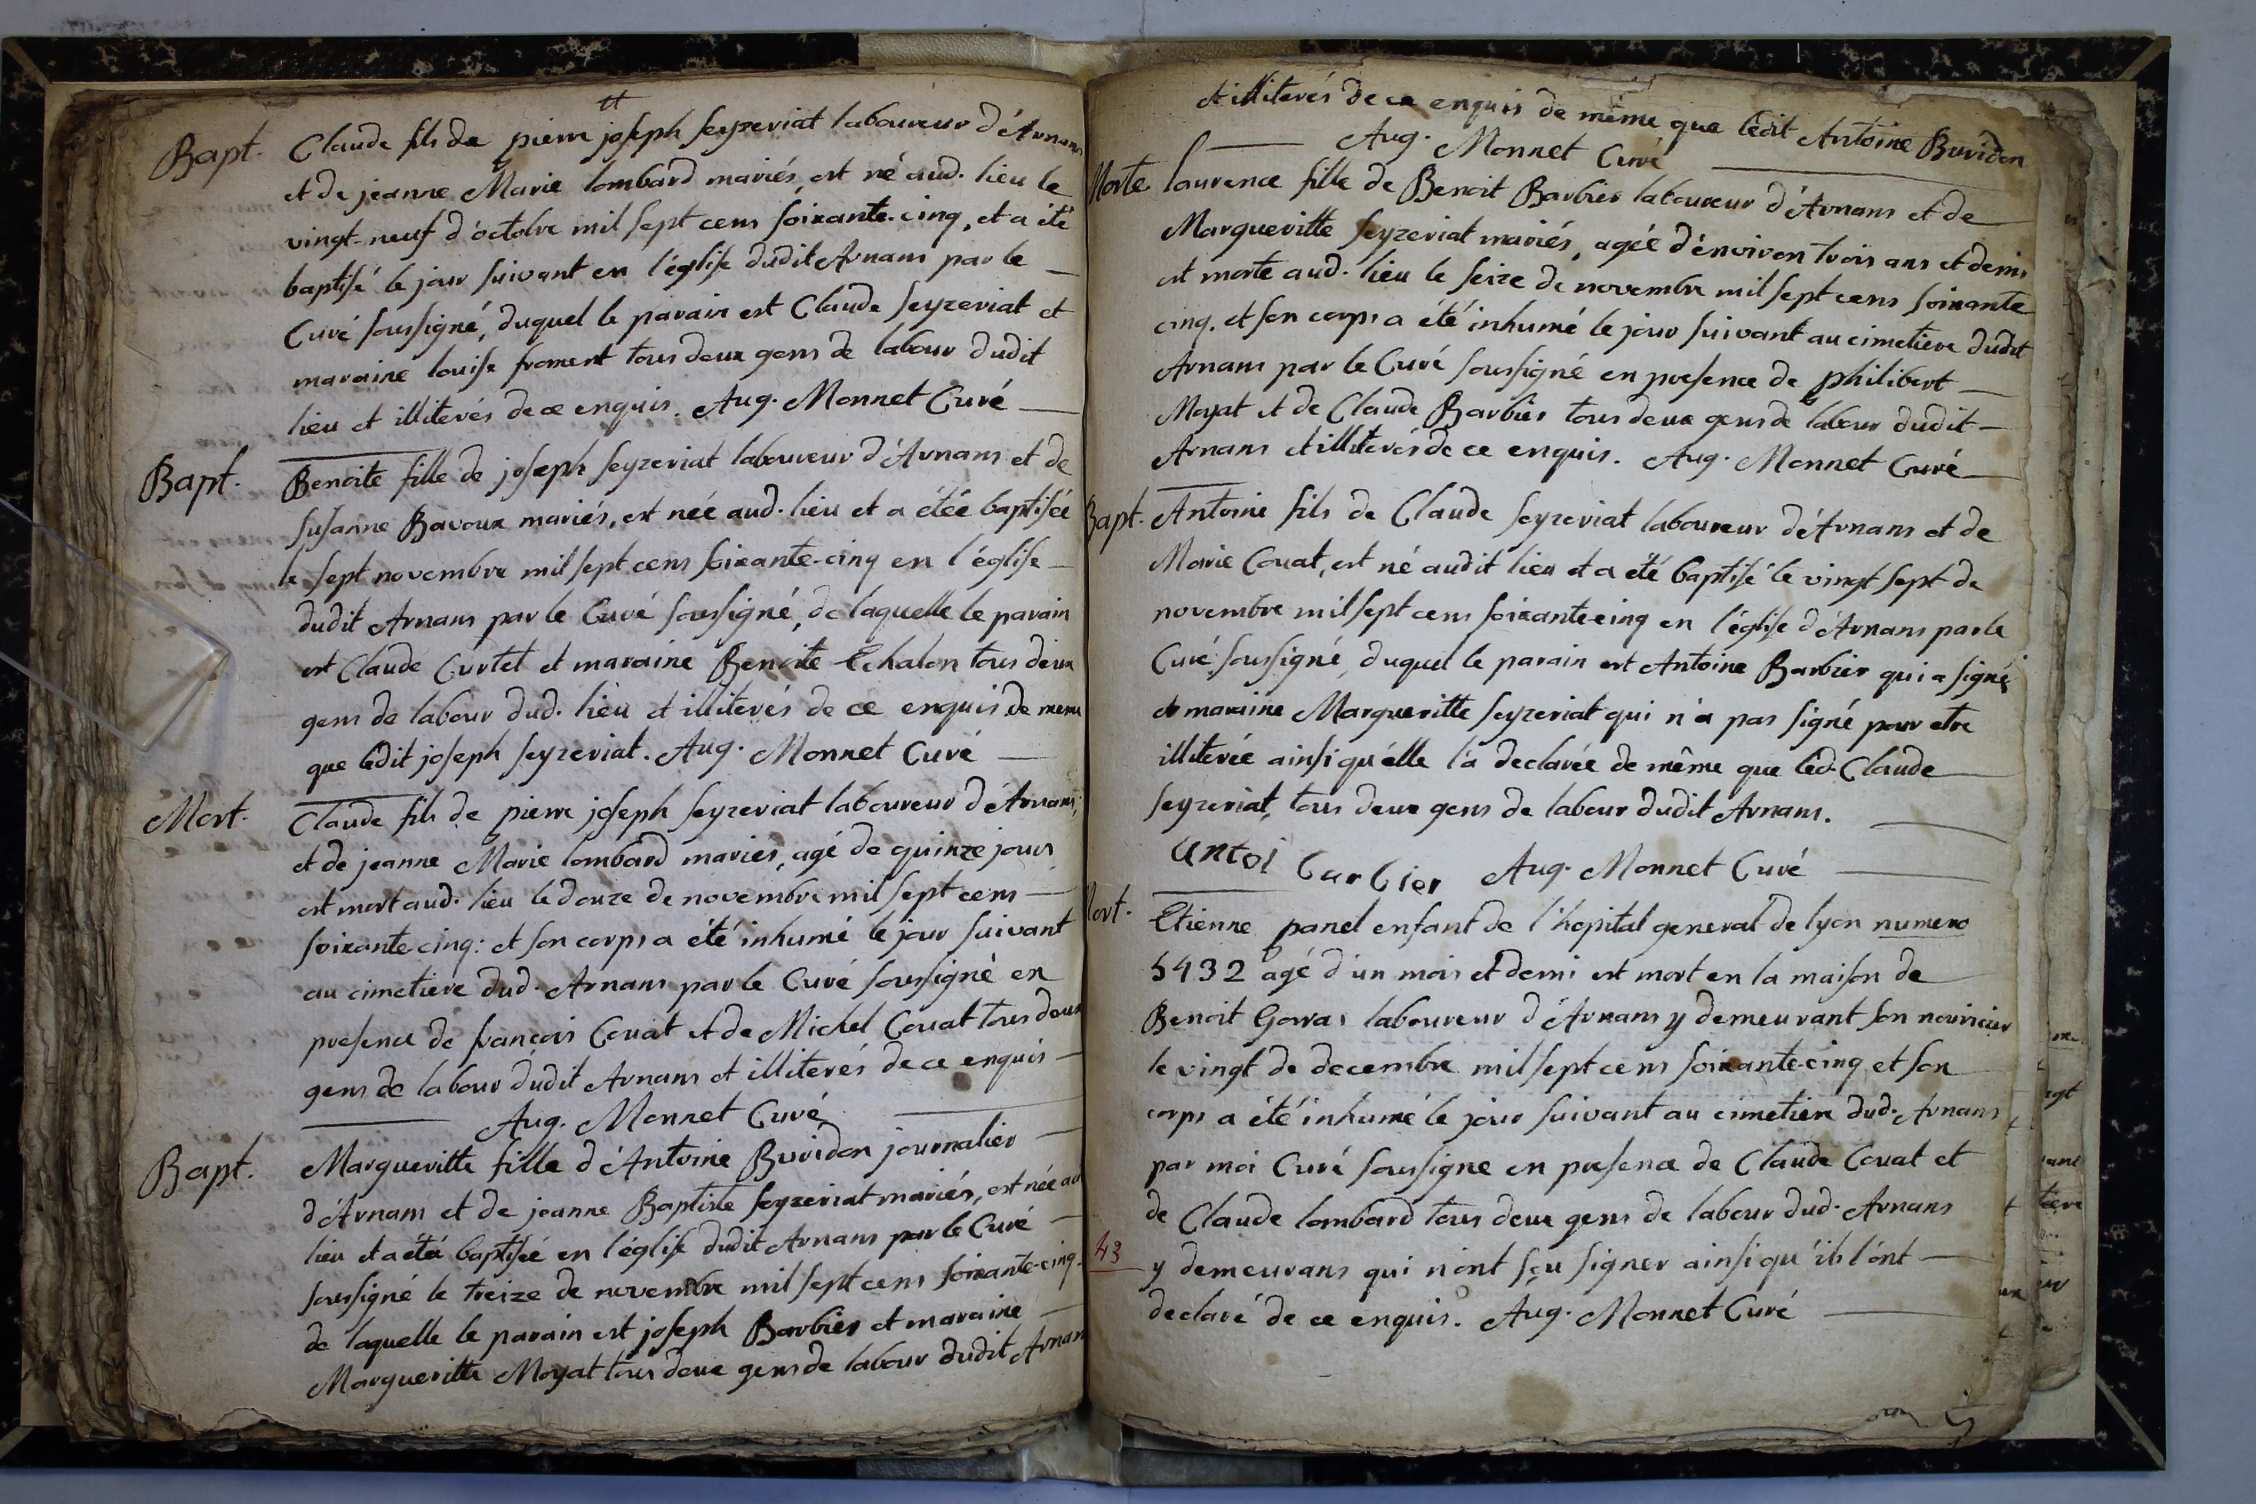 tt
Bapt. Claude fils de pierre joseph seyzeriat laboureur d'Arnans
et de jeanne Marie lombard mariés, est né aud. lieu le
vingt-neuf d'octobre mil sept cens soixante-cinq, et a été
baptisé le jour suivant en l'église dudit Arnans par le
Curé soussigné, duquel le parain est Claude seyzeriat et
maraine louise froment tous deux gens de labour dudit
lieu et illiterés de ce enquis. Aug. Monnet Curé
Bapt. Benoite fille de joseph seyzeriat laboureur d'Arnans et de
susanne Bavoux mariés, est née aud. lieu et a étée baptisée
le sept novembre mil sept cens soixante-cinq en l'église
dudit Arnans par le Curé soussigné, de laquelle le parain
est Claude Curtet et maraine Benoite Echalon tous deux
gens de labour dud. lieu et illiterés de ce enquis de meme
que ledit joseph seyzeriat. Aug. Monnet Curé
Mort. Claude fils de pierre joseph seyzeriat laboureur d'Arnans,
et de jeanne Marie lombard mariés, agé de quinze jours
est mort aud. lieu le douze de novembre mil sept cens
soixante-cinq: et son corps a été inhumé le jour suivant
au cimetiere dud. Arnans par le Curé soussigné en
presence de françois Couat et de Michel Couat tous deux
gens de labour dudit Arnans et illiterés de ce enquis
Aug. Monnet Curé
Bapt. Margueritte fille d'Antoine Buvidon journalier
d'Arnans et de jeanne Baptiste seyzeriat mariés, est née au
lieu et a été baptisée en l'église dudit Arnans par le Curé
soussigné le treize de novembre mil sept cens soixante-cinq.
de laquelle le parain est joseph Barbier et maraine
Margueritte Moyat tous deux gens de labour dudit Arnans
et illiterés de ce enquis de même que ledit Antoine Buvidon
Aug. Monnet Curé
Morte laurence fille de Benoit Barbier laboureur d'Arnans et de
Margueritte seyzeriat mariés, agée d'environ trois ans et demi
est morte aud. lieu le seize de novembre mil sept cens soixante
cinq. et son corps a été inhumé le jour suivant au cimetiere dudit
Arnans par le Curé soussigné en presence de philibert
Moyat et de Claude Barbier tous deux gens de labour dudit
Arnans et illiterés de ce enquis. Aug. Monnet Curé
Bapt. Antoine fils de Claude seyzeriat laboureur d'Arnans et de
Marie Couat, est né audit lieu et a été baptisé le vingt sept de
novembre mil sept cens soixante-cinq en l'église d'Arnans par le
Curé soussigné, duquel le parain est Antoine Barbier qui a signé
et maraine Margueritte seyzeriat qui n'a pas signé pour etre
illiterée ainsi qu'elle l'a declarée de même que led. Claude
seyzeriat, tous deux gens de labour dudit Arnans.
antoi barbier Aug. Monnet Curé
Mort. Etienne panel enfant de l'hopital general de lyon numero
5432 agé d'un mois et demi est mort en la maison de
Benoit Gorra laboureur d'Arnans y demeurant son nouricier
le vingt de decembre mil sept cens soixante-cinq et son
corps a été inhumé le jour suivant au cimetiere dud. Arnans
par moi Curé soussigne en presence de Claude Couat et
de Claude lombard tous deux gens de labour dud. Arnans
43 y demeurans qui n'ont sçu signer ainsi qu'ils l'ont
declaré de ce enquis. Aug. Monnet Curé